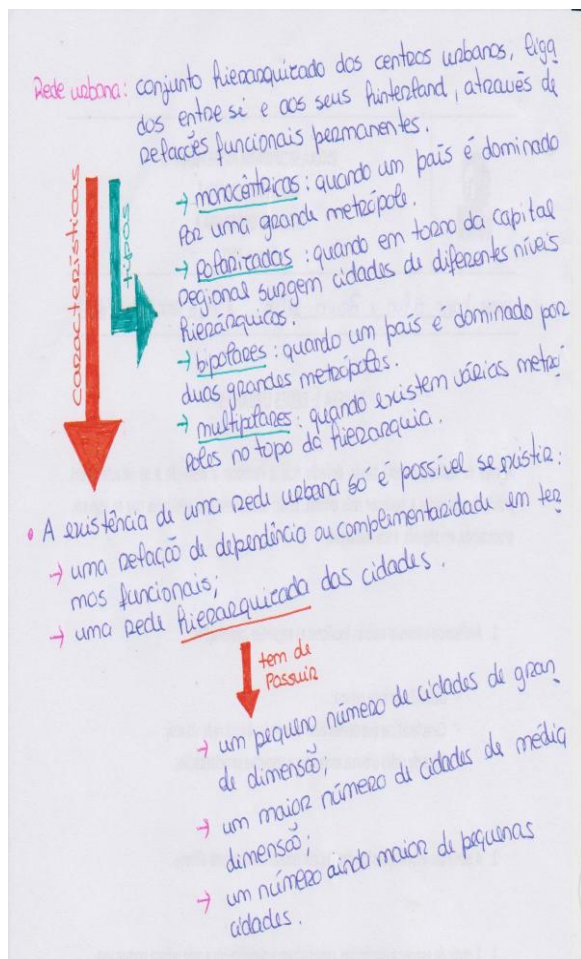 Rede urbana: conjunto hierarquizado dos centros urbanos, liga
dos entre si e aos seus hinterland, através de
relações funcionais permanentes.
características
tipos
→ monocêntricas: quando um país é dominado
por uma grande metrópole.
→ polarizadas: quando em torno da capital
regional surgem cidades de diferentes níveis
hierárquicos.
→ bipolares: quando um país é dominado por
duas grandes metrópoles.
→ multipolares: quando existem várias metró
poles no topo da hierarquia.
• A existência de uma rede urbana só é possível se existir:
→ uma relação de dependência ou complimentaridade em ter
mos funcionais;
→ uma rede hierarquizada das cidades.
tem de
possuir
→ um pequeno número de cidades de gran
de dimensão;
→ um maior número de cidades de média
dimensão;
→ um número ainda maior de pequenas
cidades.